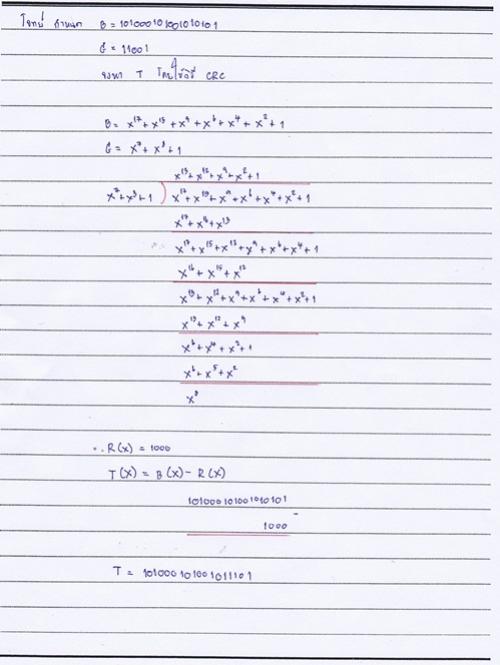 โจทย์ กำหนด B = 101000101001010101
G = 11001
จงหา T โดยใช้วิธี CRC
B = x¹⁷ + x¹⁵ + x⁹ + x⁶ + x⁴ + x² + 1
G = x⁴ + x³ + 1
x¹³ + x¹² + x⁹ + x² + 1
x⁴ + x³ + 1 ) x¹⁷ + x¹⁵ + x⁹ + x⁶ + x⁴ + x² + 1
x¹⁷ + x¹⁶ + x¹³
x¹⁷ + x¹⁵ + x¹³ + x⁹ + x⁶ + x⁴ + 1
x¹⁶ + x¹⁵ + x¹²
x¹³ + x¹² + x⁹ + x⁶ + x⁴ + x² + 1
x¹³ + x¹² + x⁹
x⁶ + x⁴ + x² + 1
x⁶ + x⁵ + x²
x³
∴ R(x) = 1000
T(x) = B(x) - R(x)
101000101001010101
-
1000
T = 101000101001011101